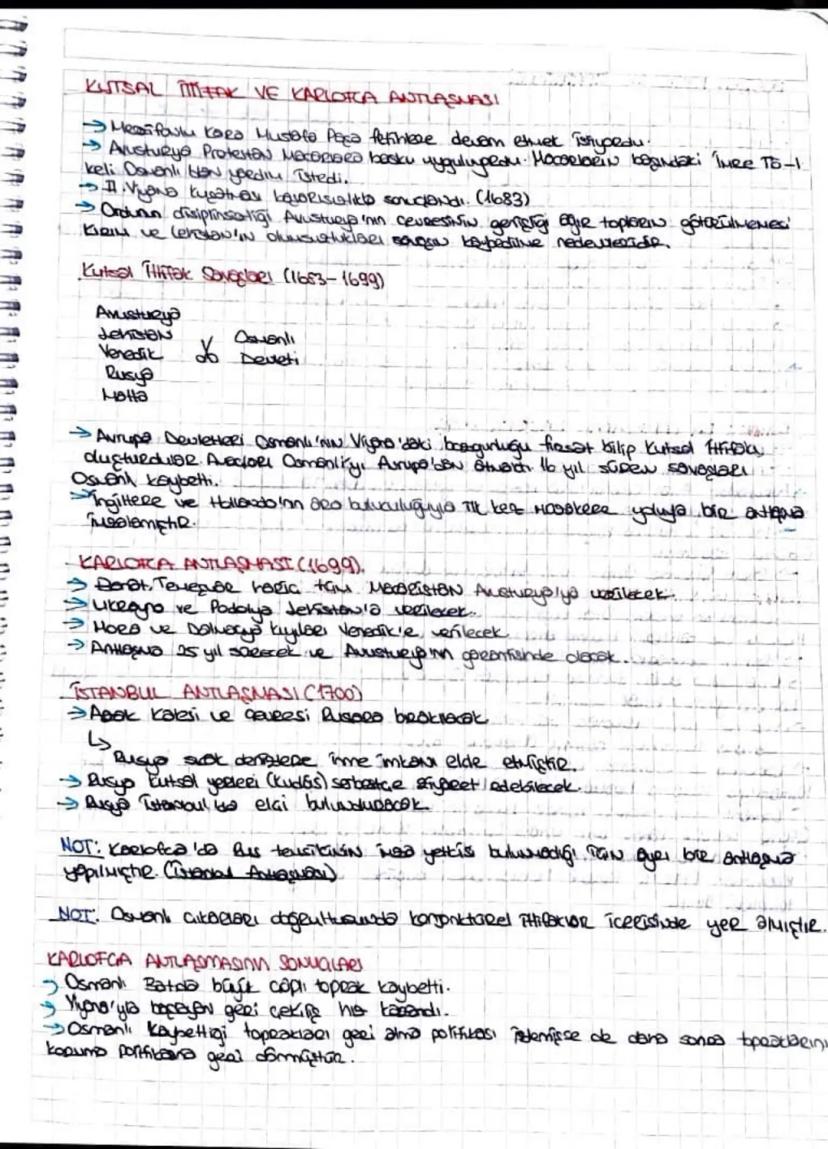 KUTSAL İTTİFAK VE KARLOFÇA ANTLAŞMASI
→ Merzifonlu Kara Mustafa Paşa fetihlere devam etmek istiyordu.
→ Avusturya Protestan Macarlara baskı uyguluyordu. Macarların başındaki İmre Tö-
keli Osmanlı'dan yardım istedi.
→ II. Viyana Kuşatması başarısızlıkla sonuçlandı. (1683)
→ Ordunun disiplinsizliği Avusturya'nın çevresinin genişliği ağır topların götürülmemesi
Kırım ve Lehistan'ın olumsuzlukları savaşın kaybedilme nedenleridir.
Kutsal İttifak Savaşları (1683-1699)
Avusturya
Lehistan
Venedik Osmanlı
Rusya Devleti
Malta
→ Avrupa Devletleri Osmanlı'nın Viyana'daki bozgunluğu fırsat bilip Kutsal İttifakı
oluşturdular. Amaçları Osmanlı'yı Avrupa'dan atmaktı. 16 yıl süren savaşları
Osmanlı kaybetti.
→ İngiltere ve Hollanda'nın ara buluculuğuyla ilk kez müzakere yoluyla bir antlaşma
imzalamıştır.
KARLOFÇA ANTLAŞMASI (1699).
→ Banat, Temeşvar hariç tüm Macaristan Avusturya'ya verilecek.
→ Ukrayna ve Podolya Lehistan'a verilecek.
→ Mora ve Dalmaçya kıyıları Venedik'e verilecek
→ Antlaşma 25 yıl sürecek ve Avusturya'nın garantisinde olacak.
İSTANBUL ANTLAŞMASI (1700)
→ Azak Kalesi ve çevresi Ruslara bırakılacak
↳ Rusya sıcak denizlere inme imkanı elde etmiştir.
→ Rusya kutsal yerleri (Kudüs) serbestçe ziyaret edebilecek.
→ Rusya İstanbul'da elçi bulundudacak
NOT: Karlofça'da Rus temsilcinin imza yetkisi bulunmadığı için ayrı bir antlaşma
yapılmıştır. (İstanbul Antlaşması)
NOT: Osmanlı çıkarları doğrultusunda konjonktürel ittifaklar içerisinde yer almıştır.
KARLOFÇA ANTLAŞMASININ SONUÇLARI
→ Osmanlı Batıda büyük çaplı toprak kaybetti.
→ Viyana'yla başlayan geri çekiliş hız kazandı.
→ Osmanlı kaybettiği toprakları geri alma politikası izlemişse de daha sonra topraklarını
koruma politikasına geri dönmüştür.